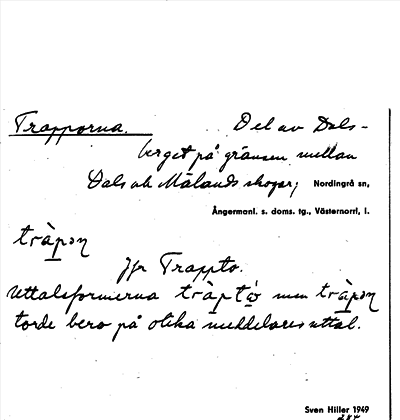 Trapporna. Del av Dals-
berget på gränsen mellan
Dals och Mälands skogar; Nordingrå sn,
Ångermanl. s. doms. tg., Västernorrl. l.
tràpo̱n
Jfr Trappto.
Uttalsformerna tràptò men tràpo̱n
torde bero på olika meddelares uttal.
Sven Hiller 1949